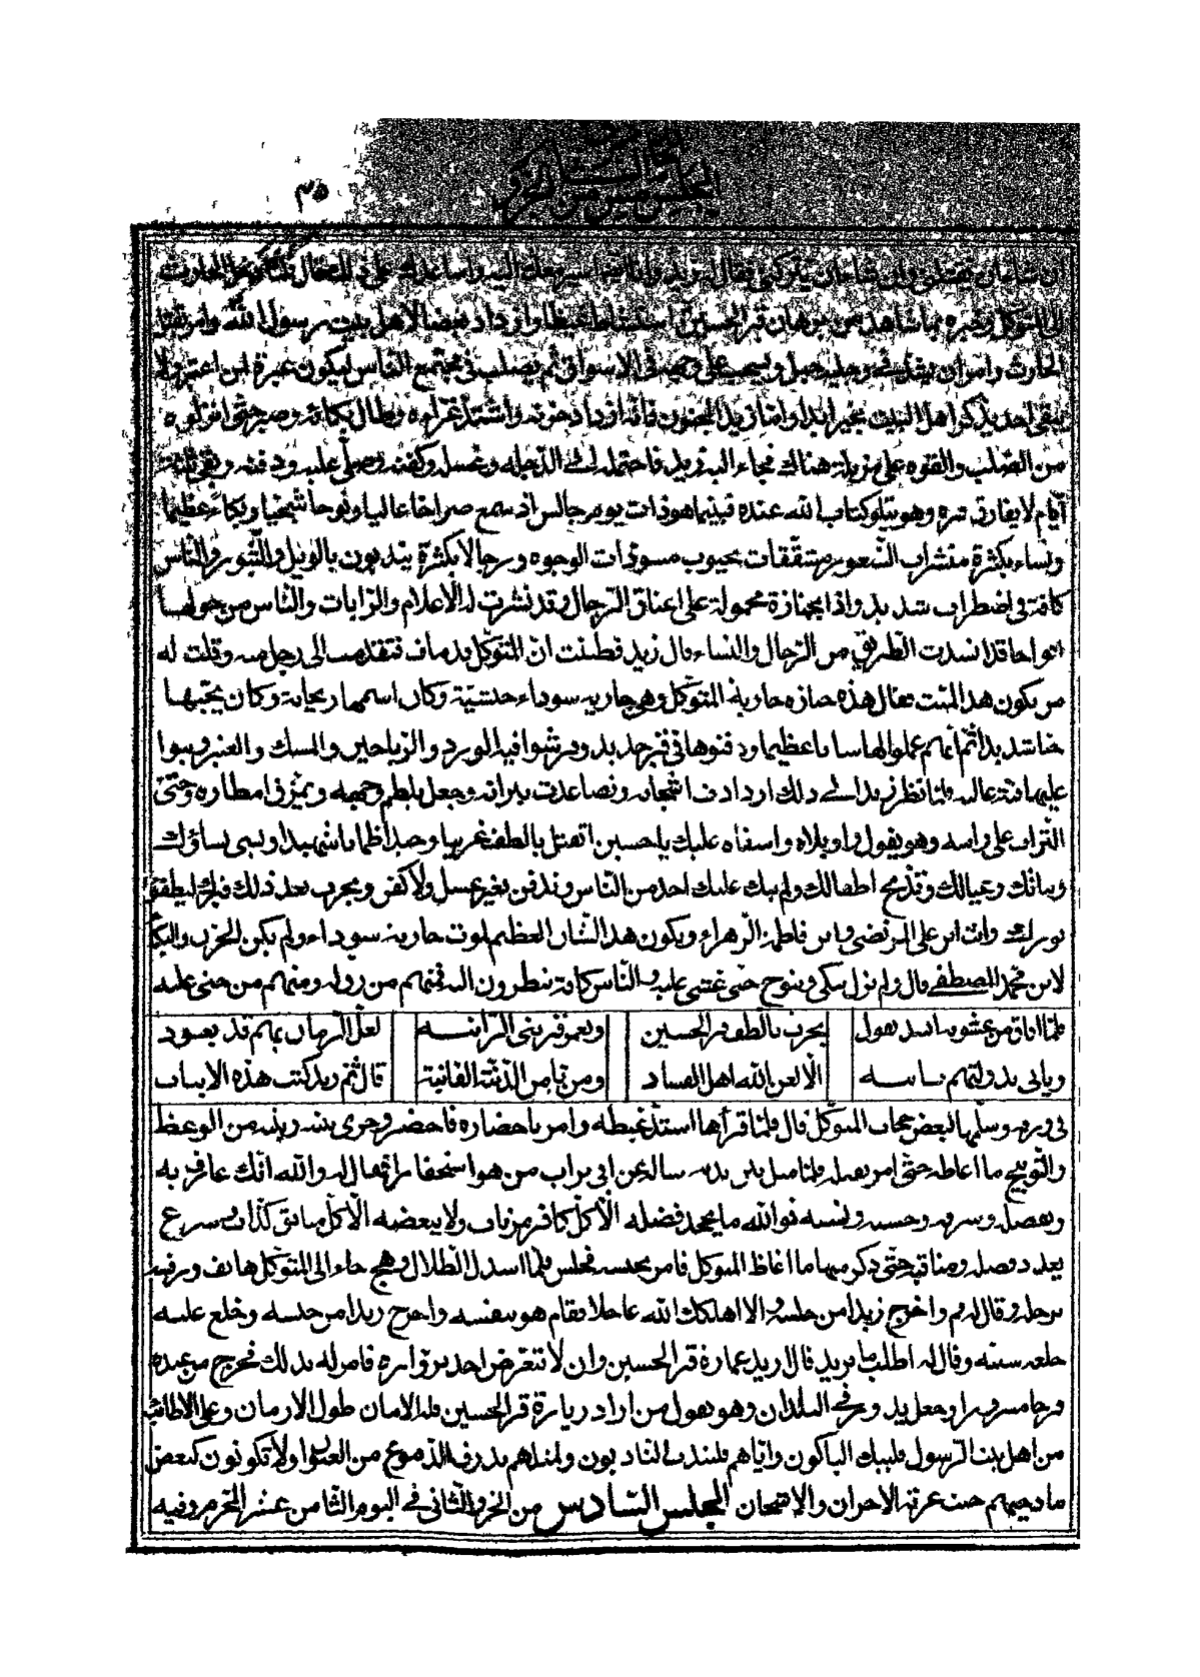 المجلس من الجزء
٣٥
ان شاء ان يقتلني وان شاء ان يتركني فقال له زيد وانا ايضا اسير معك اليه واساعدك على ذلك قال فلما دخل الحارث
الى المتوكل وخبره بما شاهد من برهان قبر الحسين استشاط غيظا وازداد بغضا لاهل بيت رسول الله وامر بقتل
الحارث وامر ان يشد في رجليه حبل ويسحب على وجهه في الاسواق ثم يصلب في مجتمع الناس ليكون عبرة لمن اعتبر ولا
يبقى احد يذكر اهل البيت بخير ابدا واما زيد المجنون فانه ازداد حزنه واشتد عزاؤه وطال بكائه وصبر حتى انزلوه
من الصلب والقوه على مزبلة هناك فجاء اليه زيد فاحتمله الى الدجلة وغسله وكفنه وصلى عليه ودفنه وبقى ثلثة
ايام لا يفارق قبره وهو يتلو كتاب الله عنده فبينما هو ذات يوم جالس اذ سمع صراخا عاليا ونوحا شجيا وبكاء عظيما
ونساء بكثرة منشرات الشعور مشققات الجيوب مسودات الوجوه ورجالا بكثرة يندبون بالويل والثبور والناس
كافة في اضطراب شديد واذا بجنازة محمولة على اعناق الرجال وقد نشرت لها الاعلام والرايات والناس من حولها
افواجا قد انسدت الطريق من الرجال والنساء قال زيد فظننت ان المتوكل قد مات فتقدمت الى رجل منهم وقلت له
من يكون هذا الميت فقال هذه جنازة جارية المتوكل وهي جارية سوداء حبشية وكان اسمها ريحانة وكان يحبها
حبا شديدا ثم انهم عملوا لها شانا عظيما ودفنوها في قبر جديد وفرشوا فيه الورد والرياحين والمسك والعنبر وبنوا
عليها قبة عالية فلما نظر زيد الى ذلك ازدادت اشجانه وتصاعدت نيرانه وجعل يلطم وجهه ويمزق اطماره وحثى
التراب على راسه وهو يقول واويلاه واسفاه عليك يا حسين اتقتل بالطف غريبا وحيدا ظمانا شهيدا وتسبى نساؤك
وبناتك وعيالك وتذبح اطفالك ولم يبك عليك احد من الناس وتدفن بغير غسل ولا كفن ويحرث بعد ذلك قبرك ليطفئوا
نورك وانت ابن علي المرتضى وابن فاطمة الزهراء ويكون هذا الشان العظيم لموت جارية سوداء ولم يكن الحزن والبكاء
لابن محمد المصطفى قال ولم يزل يبكي وينوح حتى غشي عليه والناس كافة ينظرون اليه فمنهم من رق له ومنهم من جنى عليه
فلما افاق من غشوته انشد يقول ايحرث بالطف قبر الحسين ويعمر قبر بني الزانيه لعل الزمان بهم قد يعود
وياتي بدولتهم ثانيه الا لعن الله اهل الفساد ومن يامن الدنية الفانية قال ثم زيد كتب هذه الابيات
في ورقة وسلمها لبعض حجاب المتوكل قال فلما قرأها اشتد غيظه وامر باحضاره فاحضر وجرى بينه وبينه من الوعظ
والتوبيخ ما اغاظه حتى امر بقتله فلما مثل بين يديه ساله عن ابي تراب من هو استحقارا فقال له والله انك عارف به
وبفضله وشرفه وحسبه ونسبه فوالله ما يجحد فضله الا كل كافر مرتاب ولا يبغضه الا كل منافق كذاب وشرع
يعدد فضله ومناقبه حتى ذكر منها ما اغاظ المتوكل فامر بحبسه فحبس فلما اسدل الظلام وهجع جاء الى المتوكل هاتف ورفسه
برجله وقال له قم واخرج زيدا من حبسه والا اهلكك الله عاجلا فقام هو بنفسه واخرج زيدا من حبسه وخلع عليه
خلعة سنية وقال له اطلب ما تريد قال اريد عمارة قبر الحسين وان لا يتعرض احد بزواره فامر له بذلك فخرج من عنده
فرحا مسرورا وجعل يدور في البلدان وهو يقول من اراد زيارة قبر الحسين فله الامان طول الازمان وعلى الاطائب
من اهل بيت الرسول فليبك الباكون واياهم فليندب النادبون ولمثلهم تذرف الدموع من العيون او لا تكونون كبعض
مادحيهم حيث عرته الاحزان والاشجان المجلس السادس من الجزء الثاني في اليوم الثامن عشر المحرم وفيه